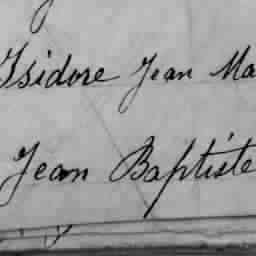 Isidore Jean Ma
Jean Baptiste